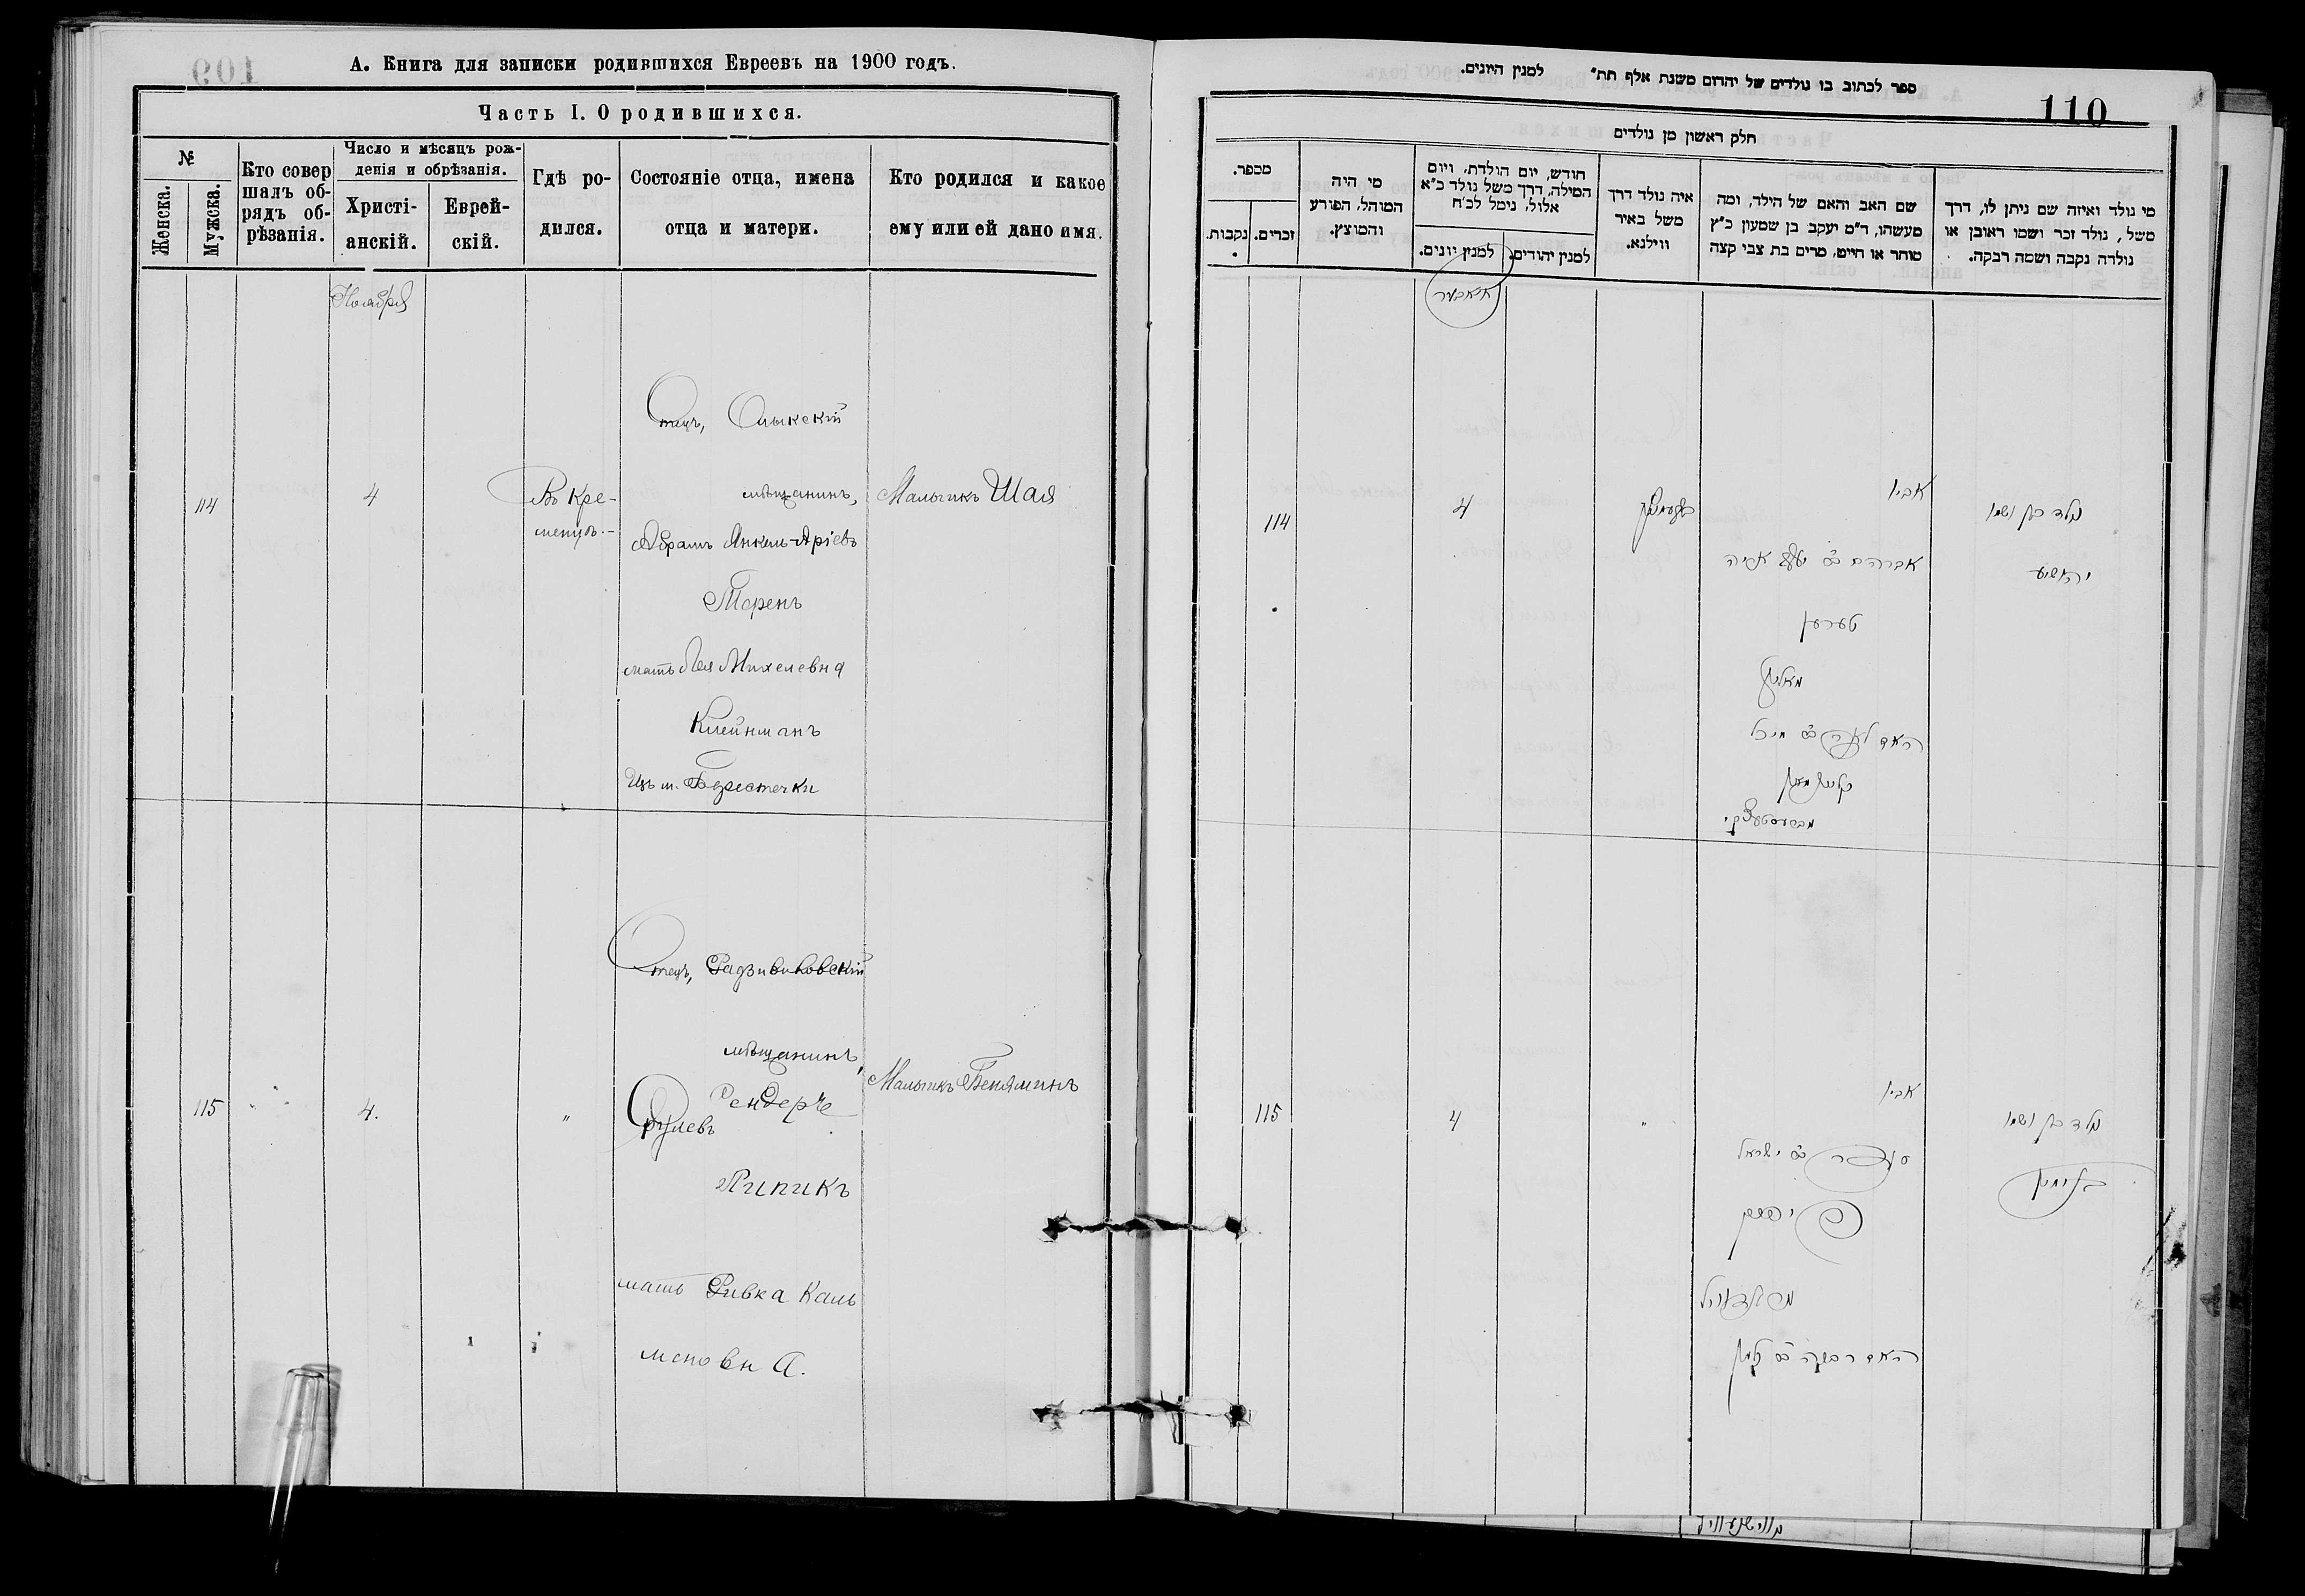 109
А. Книга для записки родившихся Евреевъ на 1900 годъ.
Часть I. О родившихся.
№
Женска.
Мужска.
Кто совер
шалъ об-
рядъ об-
рѣзанія.
Число и мѣсяцъ рож-
денія и обрѣзанія.
Христі-
анскій.
Еврей-
скій.
Гдѣ ро-
дился.
Состояніе отца, имена
отца и матери.
Кто родился и какое
ему или ей дано имя.
Ноября
114
4
Въ Кре-
менцѣ.-
Отецъ, Олыкскій
мѣщанинъ,
Абрамъ Янкель-Аріевъ
Теренъ
мать Лея Михелевна
Клейнманъ
Изъ м. Берестечки
Мальчикъ Шая
115
4.
"
Отецъ, Радзивиловскій
мѣщанинъ,
Сендеръ
Срулевъ
Пипикъ
мать Ривка Каль
моновна.
Мальчикъ Беняминъ
ספר לכתוב בו נולדים של יהודים משנת אלף תת״ למנין היונים.
110
חלק ראשון מן נולדים
מספר.
נקבות.
זכרים.
מי היה
המוהל, הפורע
והמוצץ.
חודש, יום הולדת, ויום
המילה, דרך משל נולד כ״א
אלול, נימל לכ״ח
למנין יונים.
למנין יהודים.
איה נולד דרך
משל באיר
ווילנא.
שם האב והאם של הילד, ומה
מעשהו, ד״מ יעקב בן שמעון כ״ץ
סוחר או חייט, מרים בת צבי קצה
מי נולד ואיזה שם ניתן לו, דרך
משל, נולד זכר ושמו ראובן או
נולדה נקבה ושמה רבקה.
114
4
אביו
טערען
קליינמאן
נולד בן ושמו
115
4
"
אביו
האם רבקה בת קלמן
נולד בן ושמו
בנימין